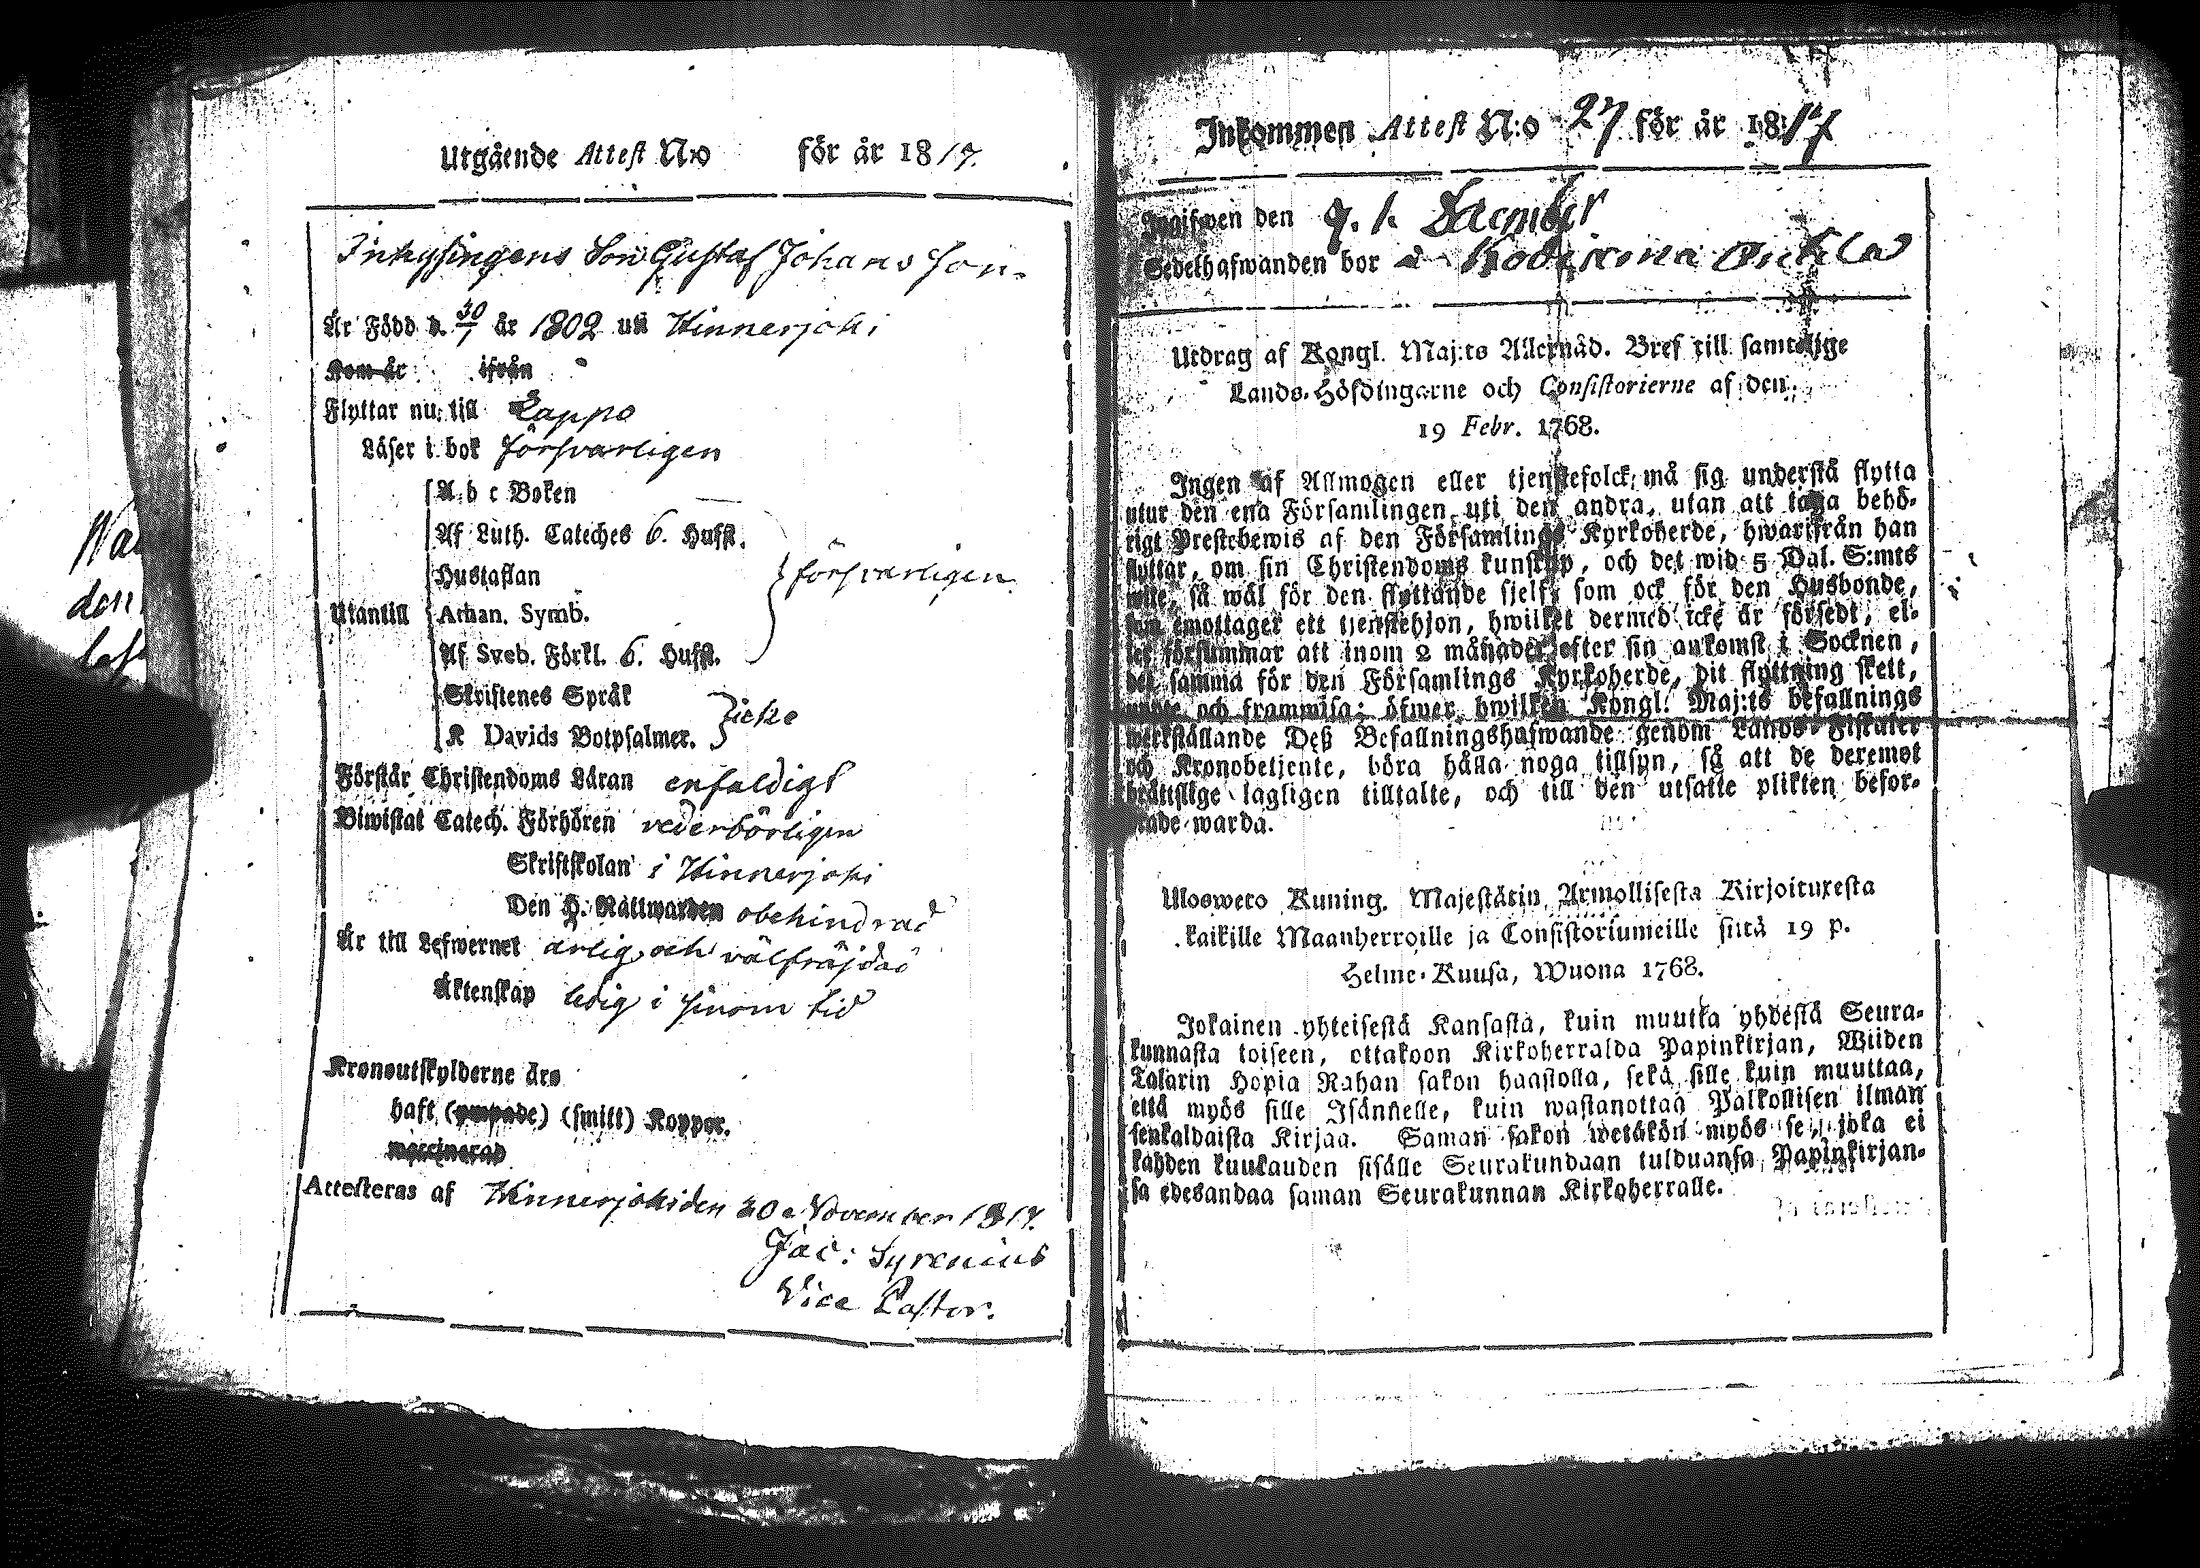 Utgående Attest N:o för år 1817.
Inhysingens Son Gustaf Johansson
Är Född d. 30/1 år 1802 uti Kinnerjoki
Kom år ifrån
Flyttar nu till Lappo
Läser i bok försvarligen
A b c Boken
Af Luth. Cateches 6. Hufst.
Hustaflan
försvarligen
Utantill
Athan. Symb.
Af Sveb. Förkl. 6. Hufst.
Skriftenes Språk
icke
K Davids Botpsalmer.
Förstår Christendoms Läran enfaldigt
Biwistat Catech. Förhören vederbörligen
Skriftskolan i Kinnerjoki
Den H. Nattwarden obehindrad
Är till Lefwernet ärlig och välfräjdad
Äktenskap ledig i sinom tid
Kronoutskylderne äro
haft (ympade) (smitt) Koppor.
waccinerad
Attesteras af Kinnerjoki den 30 November 1817.
Jac: Syrenius
Vice Pastor.
Inkommen Attest N:o 27 för år 1817
Ingifwen den
Sedelhafwanden bor å
Utdrag af Kongl. Maj:ts Allernåd. Bref till samtelige
Lands-Höfdingarne och Consistorierne af den
19 Febr. 1768.
Ingen af Allmogen eller tjenstefolck må sig understå flytta
utur den ena Församlingen uti den andra, utan att taga behö-
rigt Prestebewis af den Församlings Kyrkoherde, hwarifrån han
flyttar, om sin Christendoms kunskap, och det wid 5 Dal. S:mts
wite, så wäl för den flyttande sjelf, som ock för den Husbonde,
som emottager ett tjenstehjon, hwilket dermed icke är försedt, el-
ler försummar att inom 2 månader efter sin ankomst i Socknen,
det samma för den Församlings Kyrkoherde, dit flyttning skett,
och framwisa; öfwer hwilken Kongl. Maj:ts befallnings
werkställande Deß Befallningshafwande genom Lands-Fiskaler
och Kronobetjente, böra hålla noga tillsyn, så att de deremot
bråttslige lagligen tilltalte, och till den utsatte plikten befor-
drade warda.
Ulosweto Kuning. Majestätin Armollisesta Kirjoituxesta
kaikille Maanherroille ja Consistoriumeille siitä 19 p.
Helme-Kuusa, Wuona 1768.
Jokainen yhteisestä Kansasta, kuin muutta yhdestä Seura-
kunnasta toiseen, ottakoon Kirkoherralda Papinkirjan, Wiiden
Talarin Hopia Rahan sakon haastolla, sekä sille kuin muuttaa,
että myös sille Isännelle, kuin wastanottaa Palkollisen ilman
senkaldaista Kirjaa. Saman sakon wetäkön myös se, joka ei
kahden kuukauden sisälle Seurakundaan tulduansa, Papinkirjan-
sa edesandaa saman Seurakunnan Kirkoherralle.